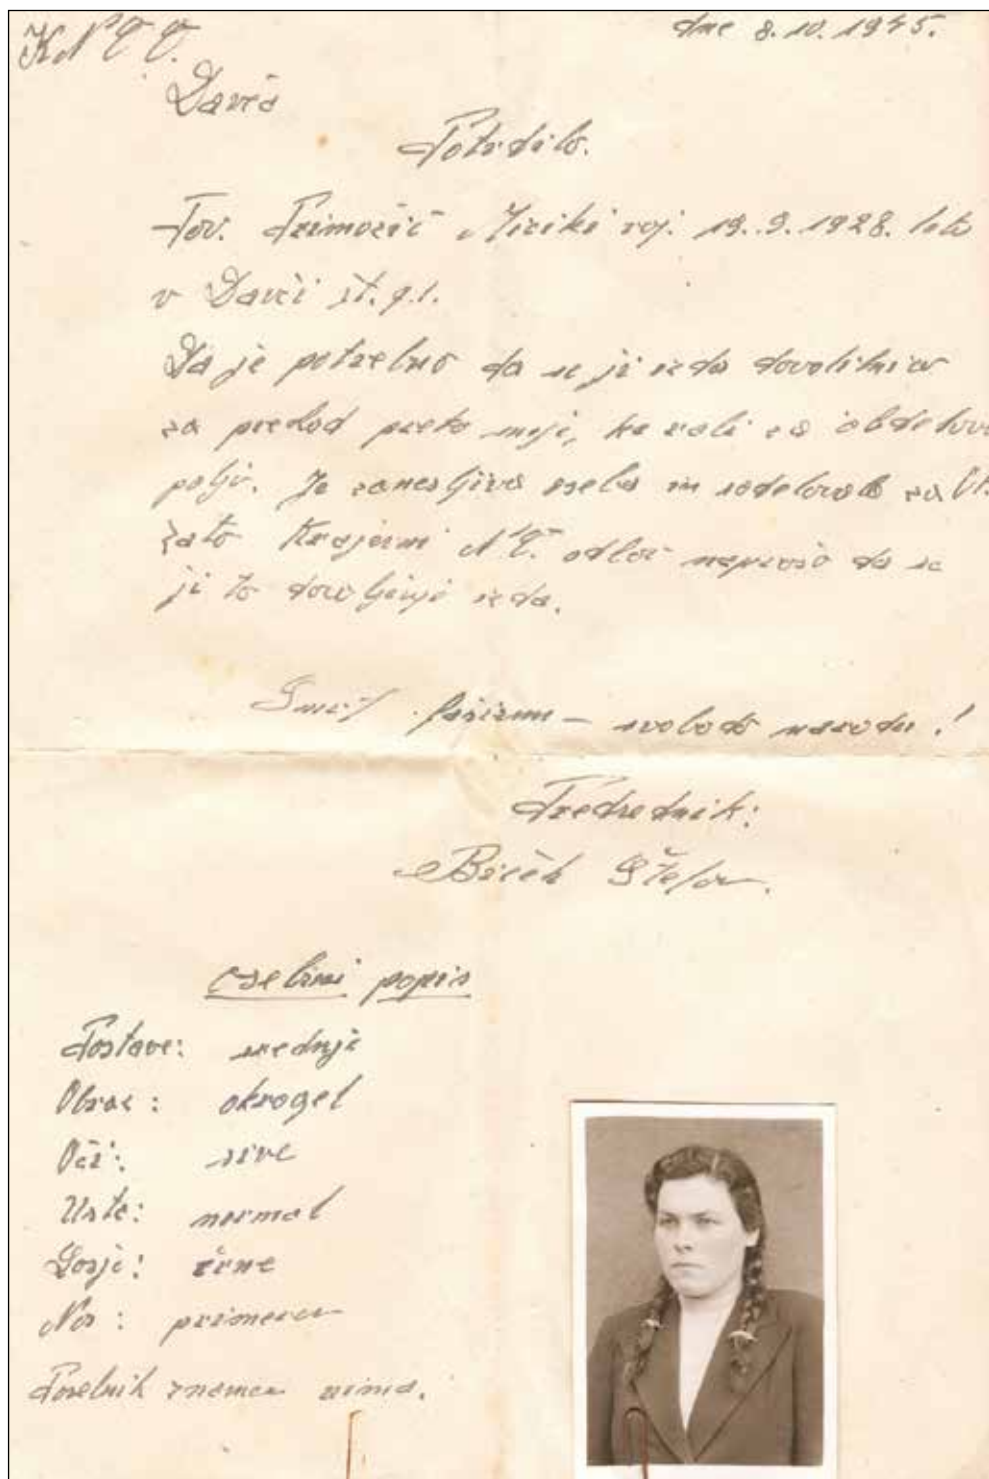 KNOO. dne 8.10.1945.
Davča
Potrdilo.
Tov. Primožič Miciki roj. 19.9.1928. leta
v Davči št. 91.
Da je potrebno da se ji izda dovolitnica
za prehod preko meji, ka radi za obdelovo
polji. Je zanesljiva oseba in sodelovala za
zato Krajevni N.O. odbor naproša da se
ji to dovoljenje izda.
Smrt fašizmu – svoboda narodu!
Predsednik:
Bičěk Štefan.
osebni popis
Postave: srednje
Obraz: okrogel
Oči: sive
Usta: normal
Lasje: črne
Nos: primeren
Posebnih znamen nima.